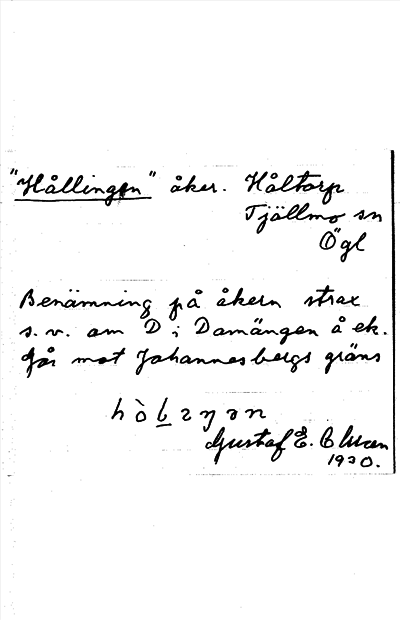 "Hållingen" åker. Håltorp
Tjällmo sn
Ögl
Benämning på åkern strax
s.v. om D i Damängen å ek.
Går mot Johannesbergs gräns
Gustaf E.
1930.